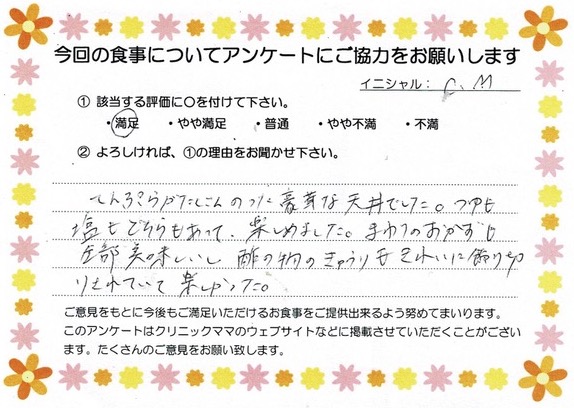 今回の食事についてアンケートにご協力をお願いします
イニシャル： C、M
① 該当する評価に○を付けて下さい。
・満足 ・やや満足 ・普通 ・やや不満 ・不満
② よろしければ、①の理由をお聞かせ下さい。
てんぷらがたくさんのった豪華な天丼でした。つゆも
塩もどちらもあって、楽しめました。まわりのおかずも
全部美味しいし 酢の物のきゅうりもきれいに飾り切
りされていて 楽しかった。
ご意見をもとに今後もご満足いただけるお食事をご提供出来るよう努めてまいります。
このアンケートはクリニックママのウェブサイトなどに掲載させていただくことがござい
ます。たくさんのご意見をお願い致します。